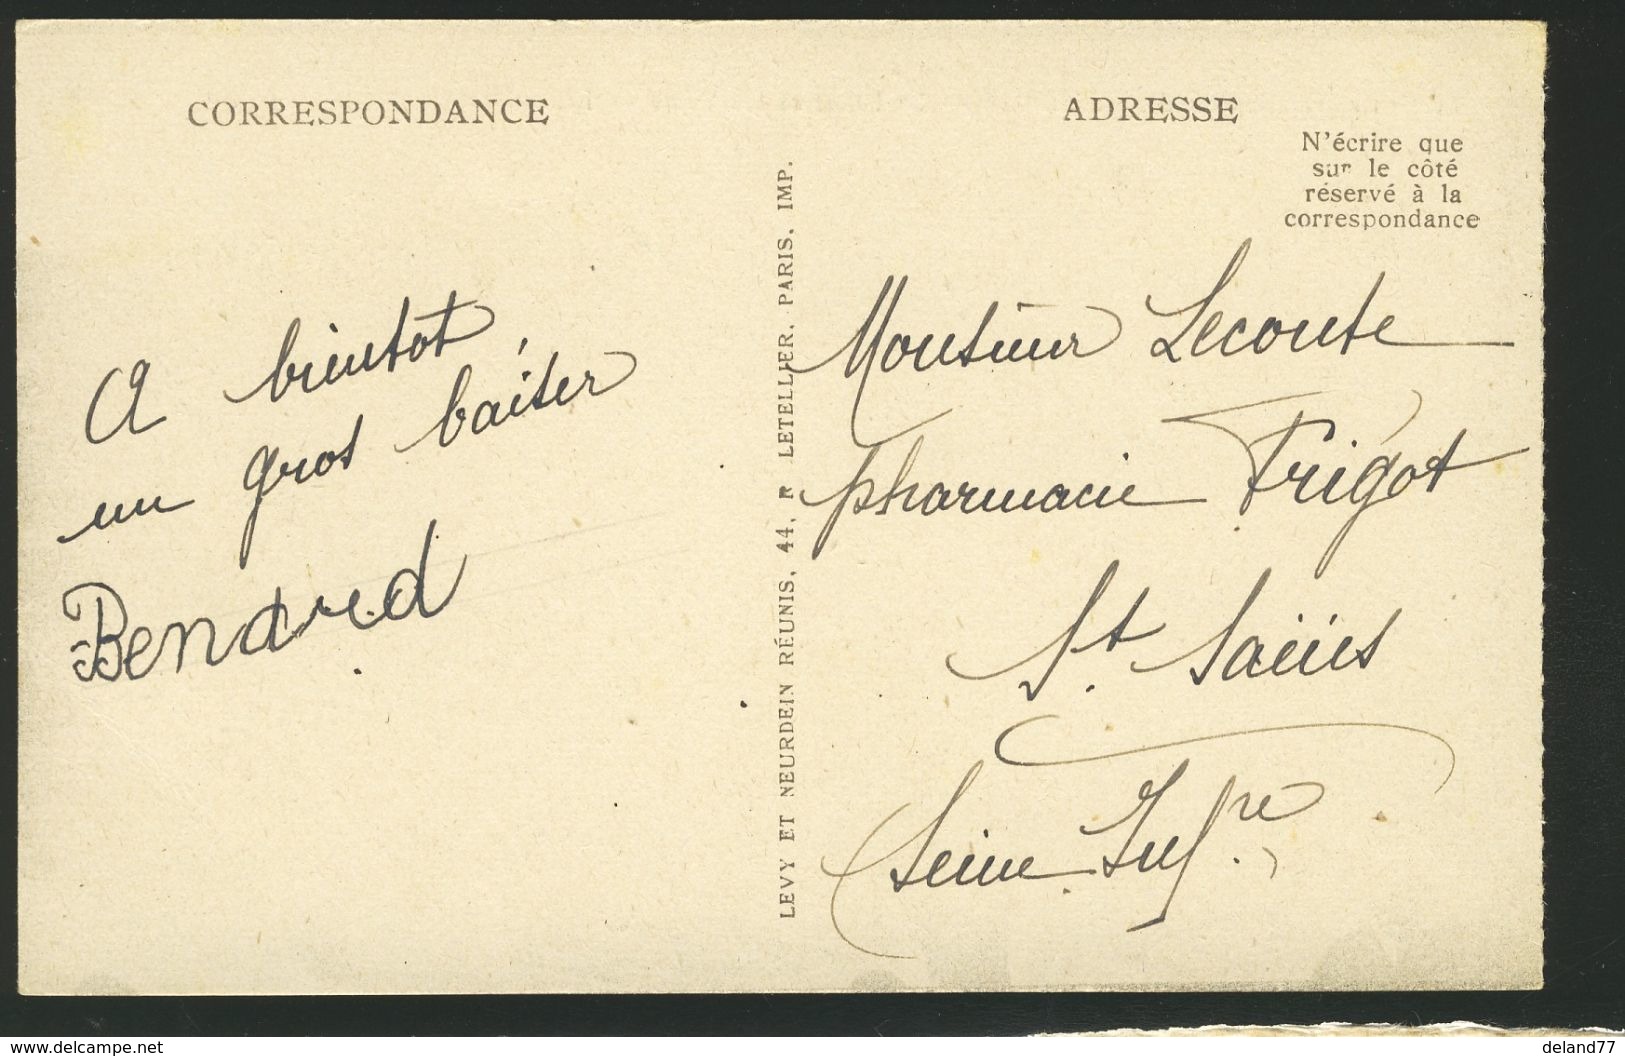 CORRESPONDANCE
A bientot
un gros baiser
Benard
LEVY ET NEURDEIN RÉUNIS, 44, R LETELLIER, PARIS, IMP.
ADRESSE
N'écrire que
sur le côté
réservé à la
correspondance
Monsieur Leconte
pharmacie Frigot
St. Saëns
Seine Infre
www.delcampe.net
deland77